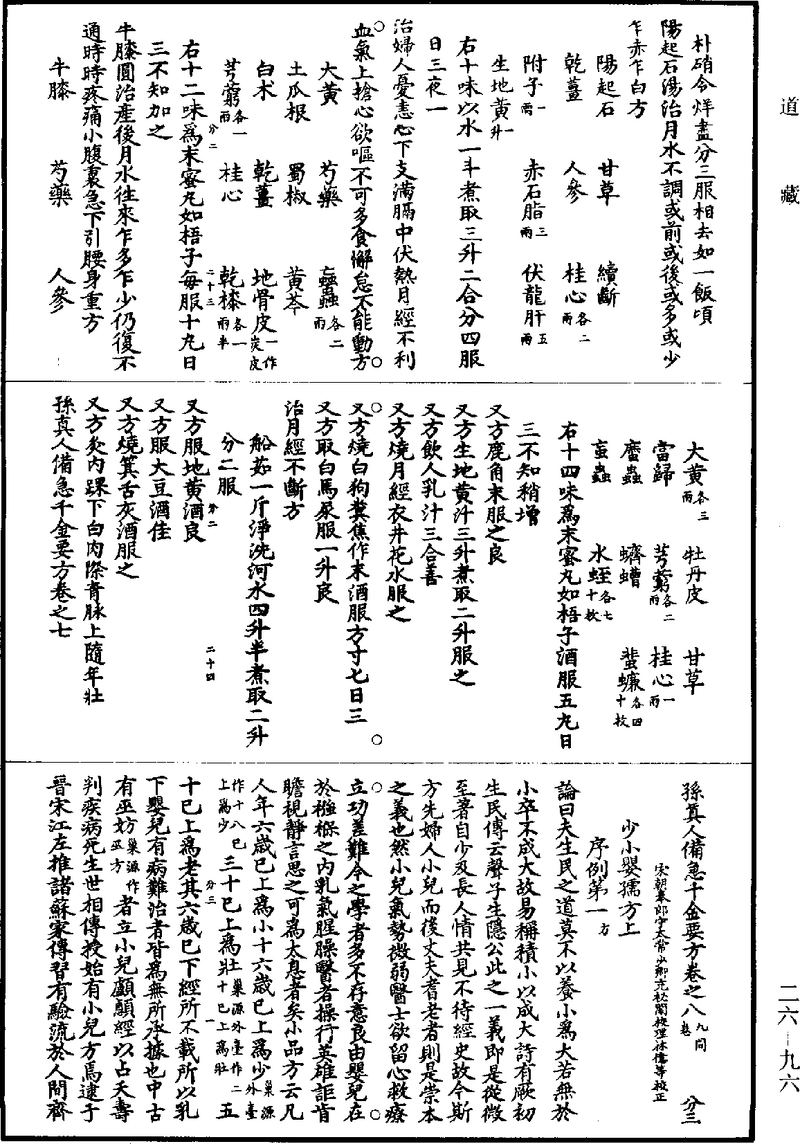 道藏
朴硝令烊盡分三服相去如一飯頃
陽起石湯治月水不調或前或後或多或少
乍赤乍白方
陽起石 甘草 續斷
乾薑 人參 桂心各二兩
附子一兩 赤石脂三兩 伏龍肝五兩
生地黃一升
右十味以水一斗煮取三升二合分四服
日三夜一
治婦人憂恚心下支滿膈中伏熱月經不利
血氣上搶心欲嘔不可多食懈怠不能動方
大黃 芍藥 䗪蟲各二兩
土瓜根 蜀椒 黃芩
白朮 乾薑 地骨皮一作炭皮
芎藭各一兩 桂心 乾漆各一兩半
分二 二十三
右十二味爲末蜜丸如梧子每服十丸日
三不知加之
牛膝圓治產後月水往來乍多乍少仍復不
通時時疼痛小腹裏急下引腰身重方
牛膝 芍藥 人參
大黃各三兩 牡丹皮 甘草
當歸 芎藭各二兩 桂心一兩
䗪蟲 蠐螬 蜚蠊各四十枚
蝱蟲 水蛭各七十枚
右十四味爲末蜜丸如梧子酒服五丸日
三不知稍增
又方鹿角末服之良
又方生地黃汁三升煮取二升服之
又方飲人乳汁三合善
又方燒月經衣井花水服之
又方燒白狗糞焦作末酒服方寸七日三
又方取白馬尿服一升良
治月經不斷方
船茹一斤淨洗河水四升半煮取二升
分二服
分二 二十四
又方服地黃酒良
又方服大豆酒佳
又方燒箕舌灰酒服之
又方灸內踝下白肉際青脉上隨年壯
孫真人備急千金要方卷之七
孫真人備急千金要方卷之八九同卷 分三
宋朝奉郎守太常少卿充秘閣校理林億等校正
少小嬰孺方上
序例第一方
論曰夫生民之道莫不以養小爲大若無於
小卒不成大故易稱積小以成大詩有厥初
生民傳云聲子生隱公此之一義即是從微
至著自少及長人情共見不待經史故今斯
方先婦人小兒而後丈夫耆老者則是崇本
之義也然小兒氣勢微弱醫士欲留心救療
立功差難今之學者多不存意良由嬰兒在
於襁褓之內乳氣腥臊醫者操行英雄詎肯
瞻視靜言思之可爲太息者矣小品方云凡
人年六歲已上爲小十六歲已上爲少巢源外臺
作十八已上爲少三十已上爲壯巢源外臺作二十已上爲壯五
分三 一
十已上爲老其六歲已下經所不載所以乳
下嬰兒有病難治者皆爲無所承據也中古
有巫妨巢源作巫方者立小兒顱顖經以占夭壽
判疾病死生世相傳授始有小兒方焉逮于
晉宋江左推諸蘇家傳習有驗流於人間齊
二六-九六